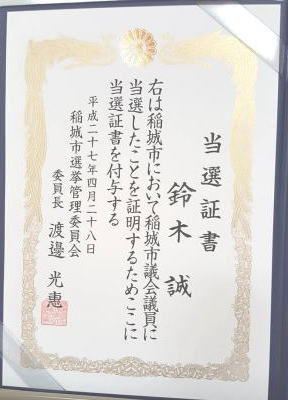 当選証書
鈴木誠
右は稲城市において稲城市議会議員に
当選したことを証明するためここに
当選証書を付与する
平成二十七年四月二十八日
稲城市選挙管理委員会
委員長 渡邊光惠